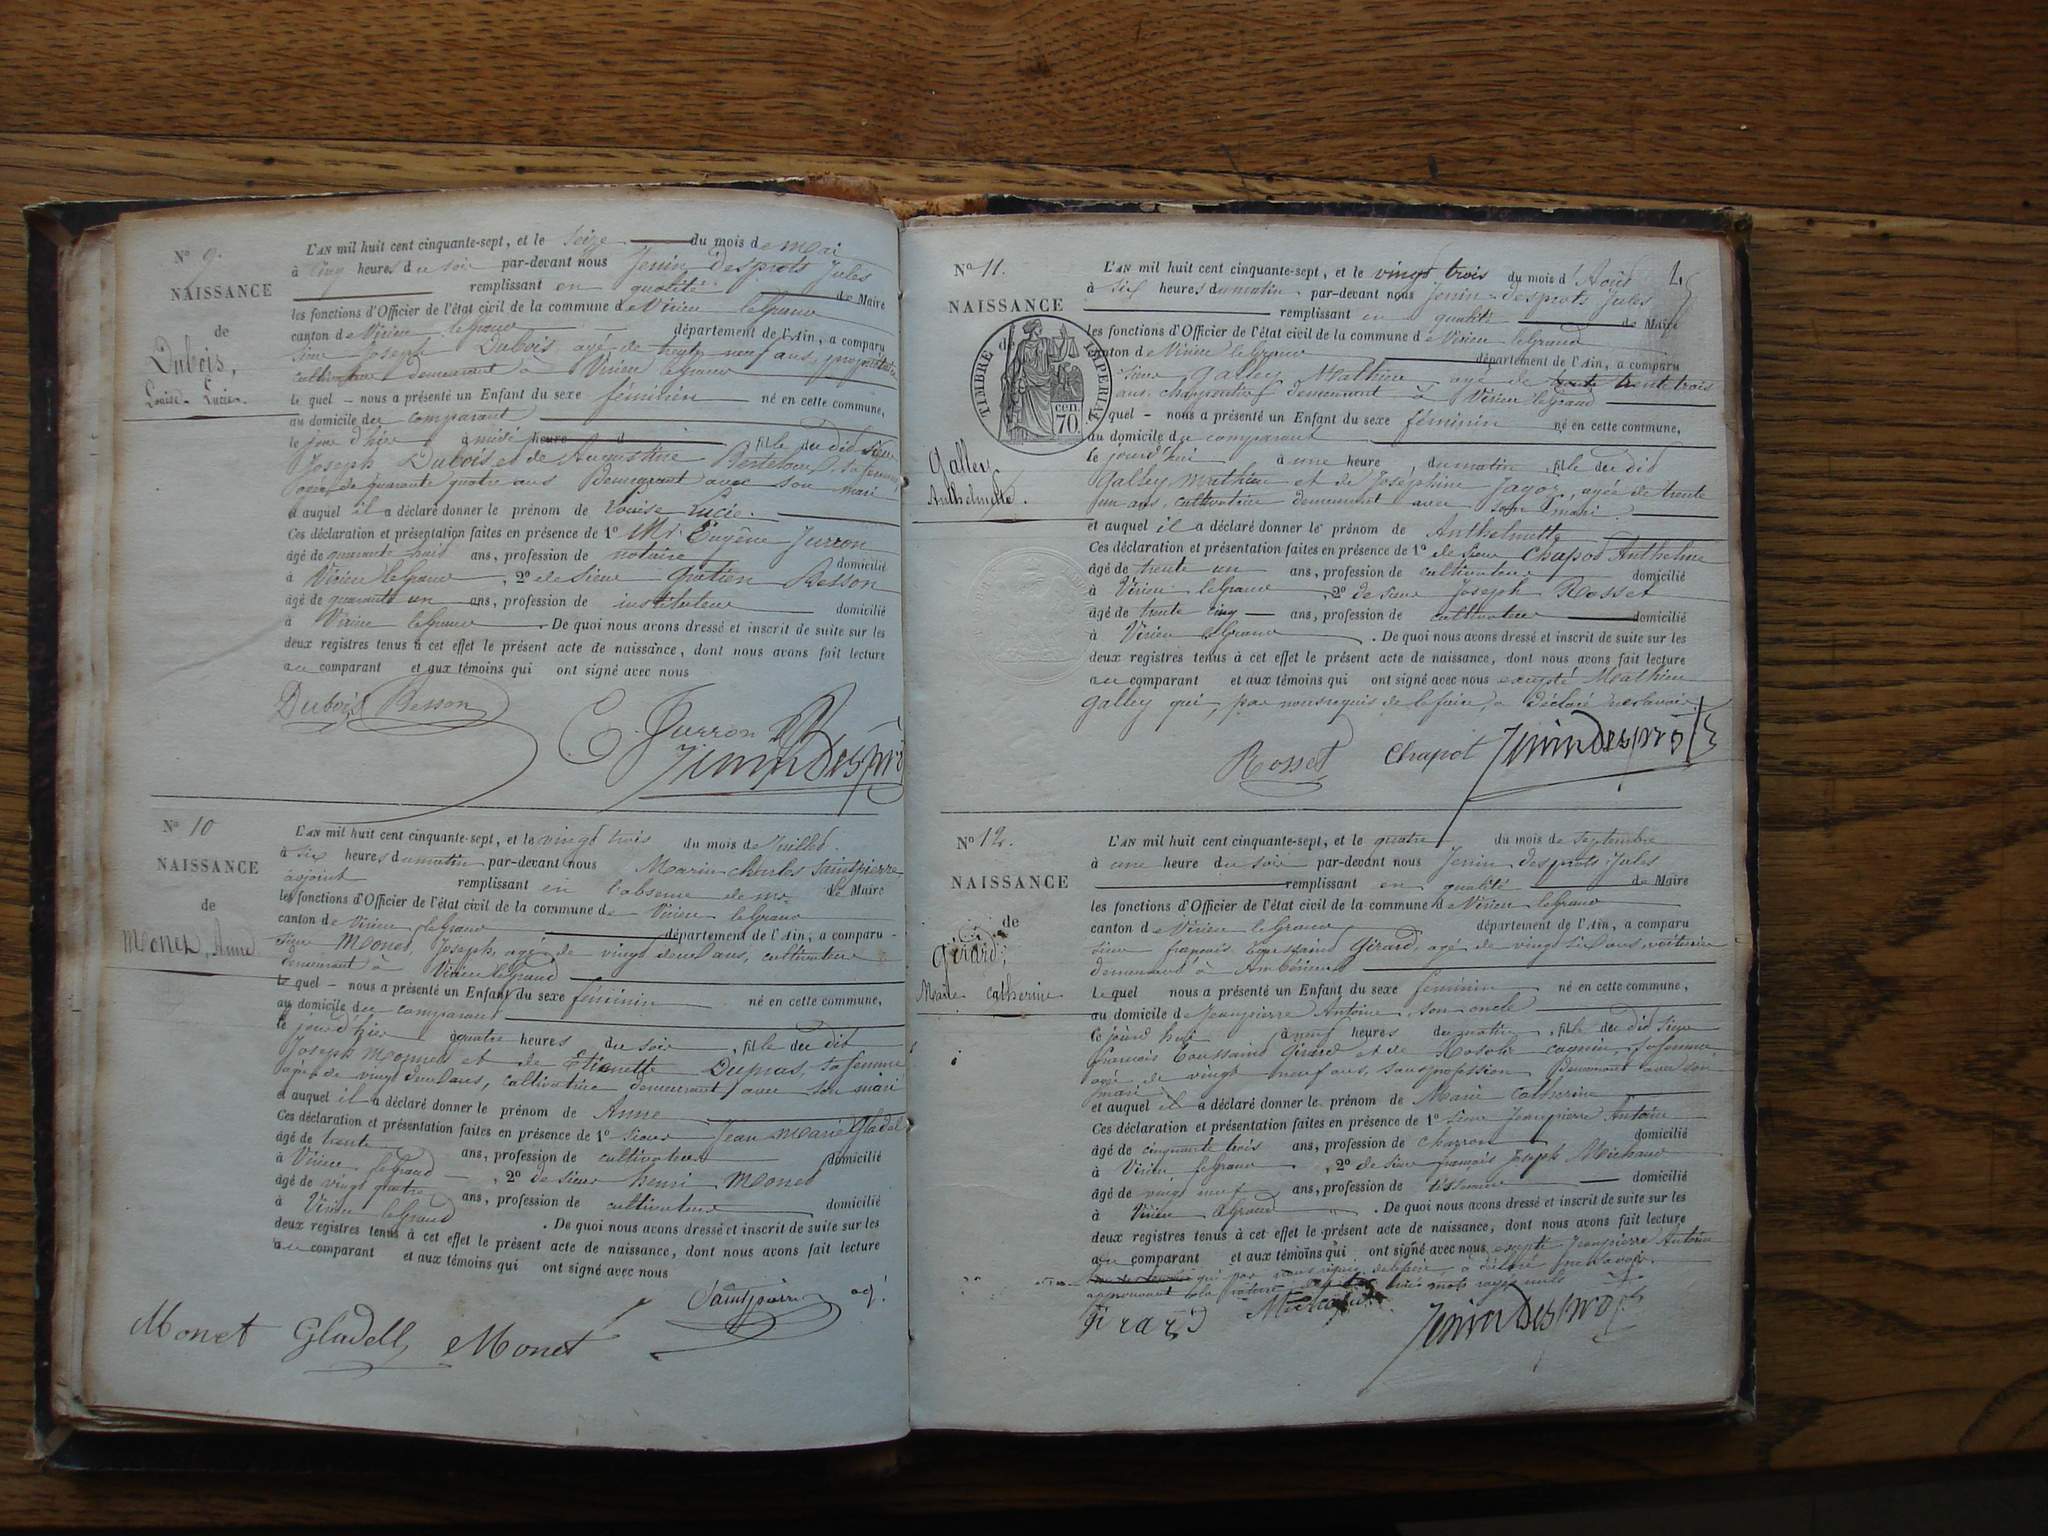 N° 9.
NAISSANCE
de
Dubois,
Louise Lucie.
L'AN mil huit cent cinquante-sept, et le Seize du mois de Mai
à Cinq heures du soir par-devant nous Jenin Desprots Jules
remplissant en qualité de Maire
les fonctions d'Officier de l'état civil de la commune de Virieu leGrand
canton de Virieu leGrand département de l'Ain, a comparu
Sieur Joseph Dubois agé de trente neuf ans, propriétaire
cultivateur demeurant à Virieu legrand
le quel - nous a présenté un Enfant du sexe féminin né en cette commune,
au domicile du comparant
le jour d'hier à midi heure d fille du dit Sieur
Joseph Dubois et de Augustine sa femme
agée de quarante quatre ans Demeurant avec son mari
et auquel il a déclaré donner le prénom de Louise Lucie.
Ces déclaration et présentation faites en présence de 1° Mr. Eugène Jurron
âgé de quarante huit ans, profession de notaire domicilié
à Virieu leGrand, 2° de Sieur Gratien Besson
âgé de quarante un ans, profession de instituteur domicilié
à Virieu leGrand. De quoi nous avons dressé et inscrit de suite sur les
deux registres tenus à cet effet le présent acte de naissance, dont nous avons fait lecture
au comparant et aux témoins qui ont signé avec nous
Dubois Besson
E. Jurron
Jenin Desprots
N° 10
NAISSANCE
de
Monet, Anne
L'AN mil huit cent cinquante-sept, et le vingt trois du mois de Juillet.
à six heures du matin par-devant nous Marin Charles Saintpierre
adjoint remplissant en l'absence de Mr. le Maire
les fonctions d'Officier de l'état civil de la commune de Virieu leGrand
canton de Virieu leGrand département de l'Ain, a comparu
Sieur Monet Joseph, agé de vingt deux ans, cultivateur
demeurant à Virieu leGrand
le quel - nous a présenté un Enfant du sexe féminin né en cette commune,
au domicile du comparant
le jour d'hier à quatre heures du soir, fille du dit
Joseph Monet et de Etienette Dupras, sa femme
agée de vingt deux ans, cultivatrice demeurant avec son mari
et auquel il a déclaré donner le prénom de Anne
Ces déclaration et présentation faites en présence de 1° Sieur Jean Marie Gladel
âgé de trente ans, profession de cultivateur domicilié
à Virieu leGrand, 2° de Sieur henri Monet
âgé de vingt quatre ans, profession de cultivateur domicilié
à Virieu leGrand. De quoi nous avons dressé et inscrit de suite sur les
deux registres tenus à cet effet le présent acte de naissance, dont nous avons fait lecture
au comparant et aux témoins qui ont signé avec nous
Saintpierre adj.
Monet Gladell Monet
N° 11.
NAISSANCE
de
TIMBRE IMPERIAL
70 cen
Galley
Anthelmette.
L'AN mil huit cent cinquante-sept, et le vingt trois du mois d'Août
à six heures du matin par-devant nous Jenin-desprots Jules
remplissant en qualité de Maire
les fonctions d'Officier de l'état civil de la commune de Virieu leGrand
canton de Virieu leGrand département de l'Ain, a comparu
Sieur Galley Mathieu agé de trente trois
ans, charpentier demeurant à Virieu legrand
lequel - nous a présenté un Enfant du sexe féminin né en cette commune,
au domicile du comparant
le jourd'hui à une heure, du matin, fille du dit
Galley Mathieu et de Joséphine Jagot, agée de trente
un ans, cultivatrice demeurant avec son mari.
et auquel il a déclaré donner le prénom de Anthelmette
Ces déclaration et présentation faites en présence de 1° de Sieur Chapot Anthelme
âgé de trente un ans, profession de cultivateur domicilié
à Virieu leGrand, 2° de Sieur Joseph Rosset
âgé de trente cinq ans, profession de cultivateur domicilié
à Virieu leGrand. De quoi nous avons dressé et inscrit de suite sur les
deux registres tenus à cet effet le présent acte de naissance, dont nous avons fait lecture
au comparant et aux témoins qui ont signé avec nous excepté Mathieu
Galley qui, par nous requis de le faire, a déclaré ne savoir.
Rosset Chapot Jenin Desprots
N° 12.
NAISSANCE
de
Girard,
Marie Catherine
L'AN mil huit cent cinquante-sept, et le quatre du mois de Septembre
à une heure du soir par-devant nous Jenin desprots Jules
remplissant en qualité de Maire
les fonctions d'Officier de l'état civil de la commune de Virieu leGrand
canton de Virieu leGrand département de l'Ain, a comparu
Sieur françois Toussaint Girard, agé de vingt six ans, voiturier
demeurant à Ambérieu
lequel nous a présenté un Enfant du sexe féminin né en cette commune,
au domicile de Jeanpierre Antoine, son oncle
le jourd'hui à neuf heures du matin, fille du dit Sieur
françois Toussaint Girard et de Rosalie sa femme,
agée de vingt neuf ans, sans profession Demeurant avec son
mari
et auquel il a déclaré donner le prénom de Marie Catherine
Ces déclaration et présentation faites en présence de 1° Sieur Jeanpierre Antoine
âgé de cinquante trois ans, profession de charron domicilié
à Virieu leGrand, 2° de Sieur françois Joseph Michaud
âgé de vingt neuf ans, profession de domicilié
à Virieu leGrand. De quoi nous avons dressé et inscrit de suite sur les
deux registres tenus à cet effet le présent acte de naissance, dont nous avons fait lecture
au comparant et aux témoins qui ont signé avec nous excepté Jeanpierre Antoine
qui par nous requis de le faire, a déclaré ne savoir.
approuvant la rature mots rayés nuls
Girard Michaud
Jenin Desprots